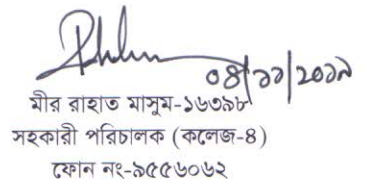 ০৪/১১/২০১৯
মীর রাহাত মাসুম-১৬৩৯৮
সহকারী পরিচালক (কলেজ-৪)
ফোন নং-৯৫৫৬০৬২